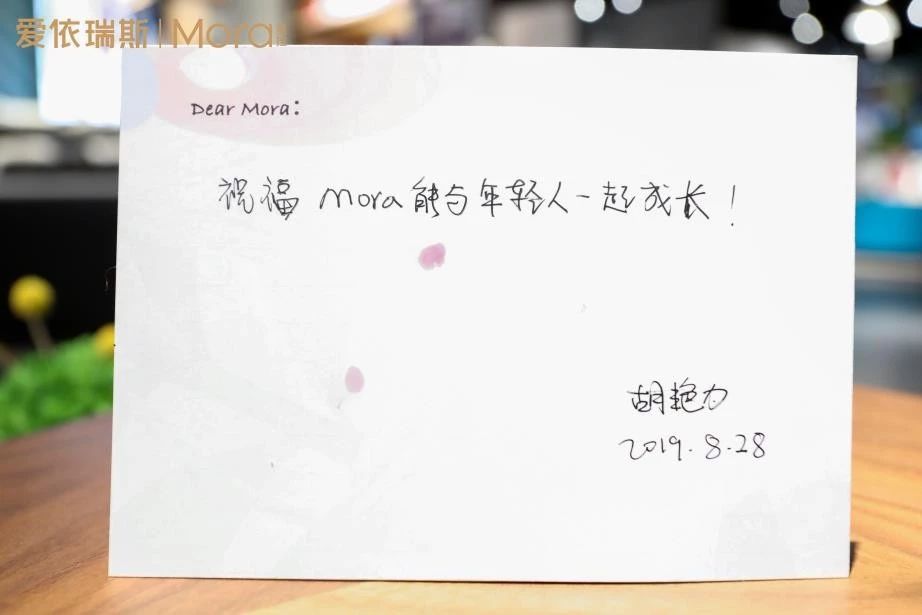 爱依瑞斯|Mora
Dear Mora:
祝福 Mora 能与年轻人一起成长!
胡艳力
2019.8.28